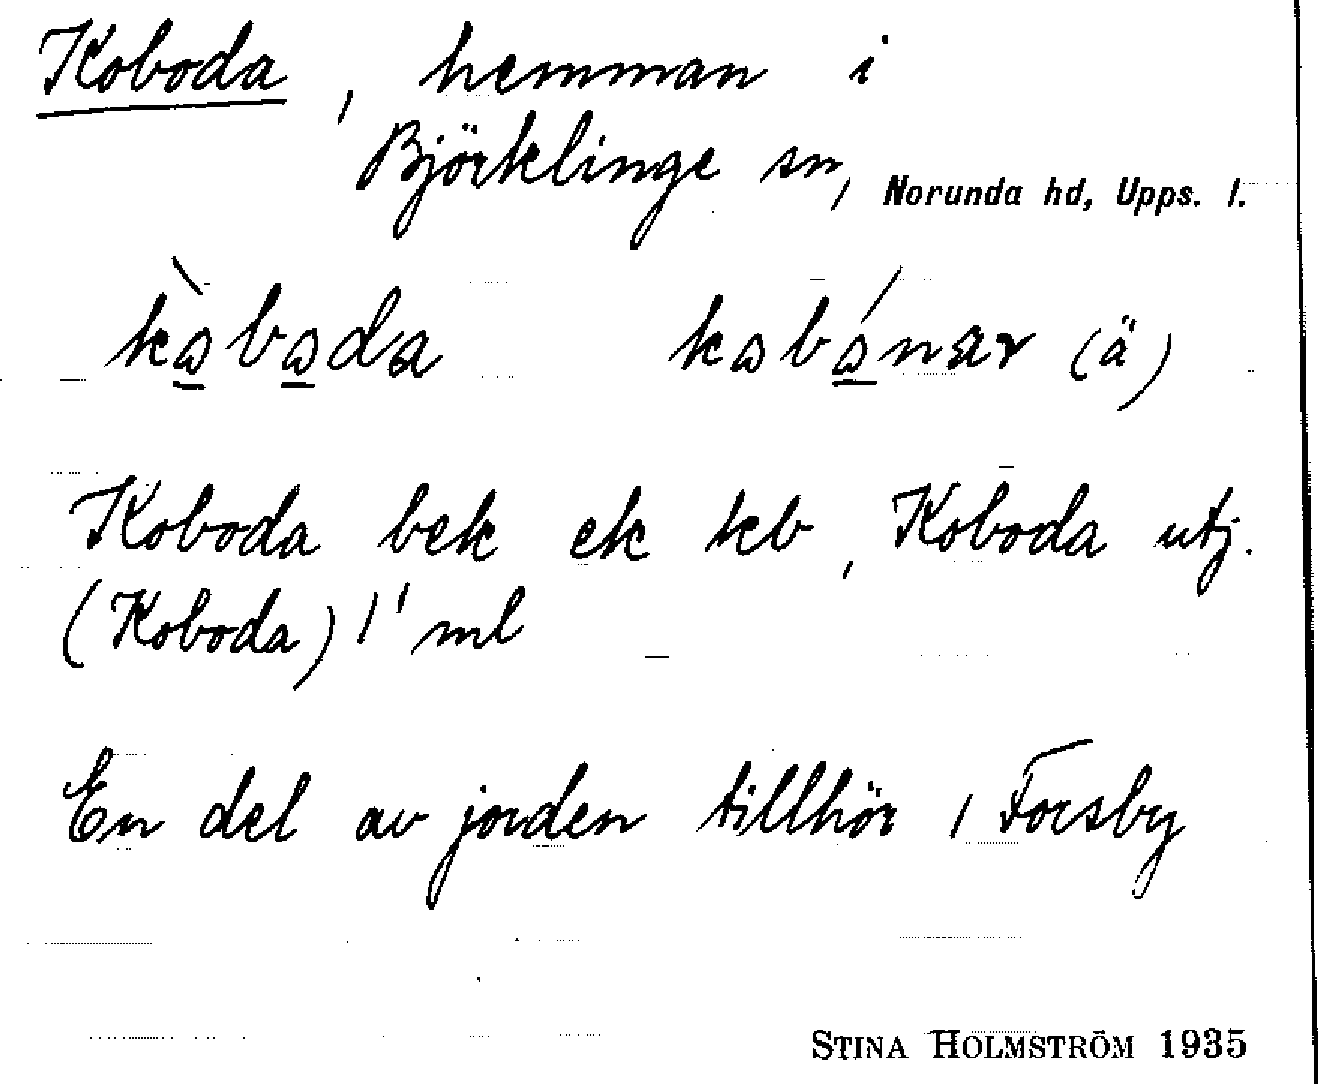 Koboda, hemman i
Björklinge sn, Norunda hd, Upps. l.
kòboda kobónar (ä)
Koboda bek ek kb, Koboda utj.
(Koboda) 1' ml
En del av jorden tillhör 1 Forsby
STINA HOLMSTRÖM 1935